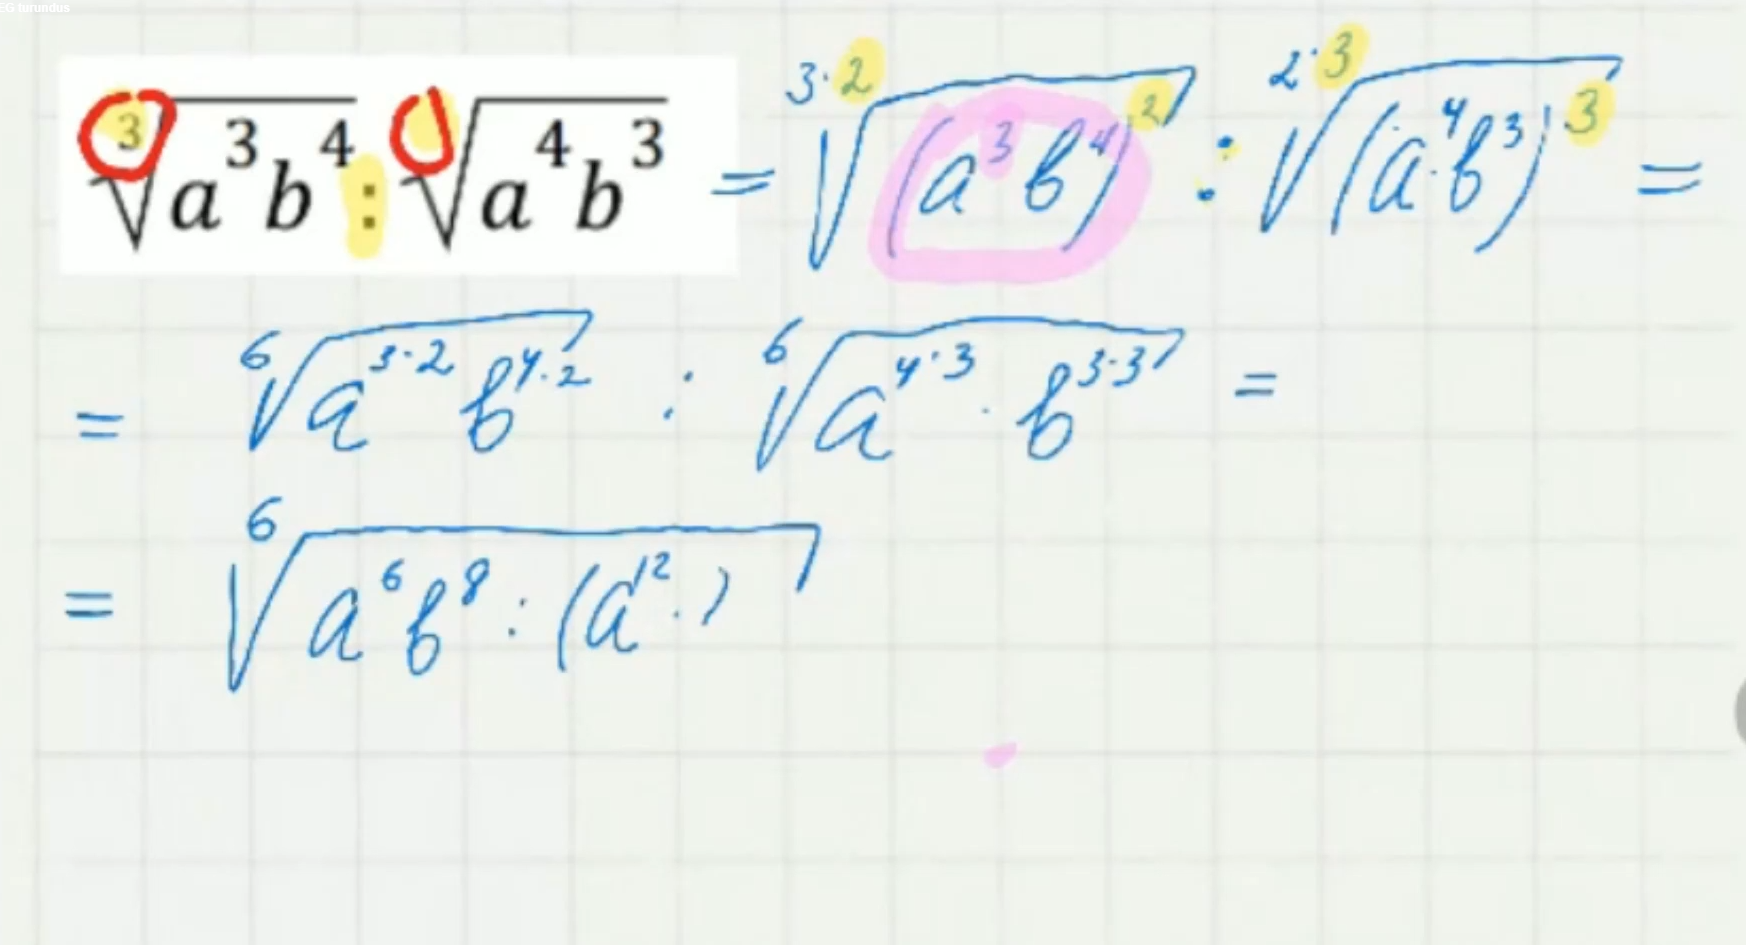 EG turundus
∛(a³b⁴) : √(a⁴b³) = ³·²√((a³b⁴)²) : ²·³√((a⁴·b³)³) =
= ⁶√(a³·²b⁴·²) : ⁶√(a⁴·³·b³·³) =
= ⁶√(a⁶b⁸ : (a¹²·))